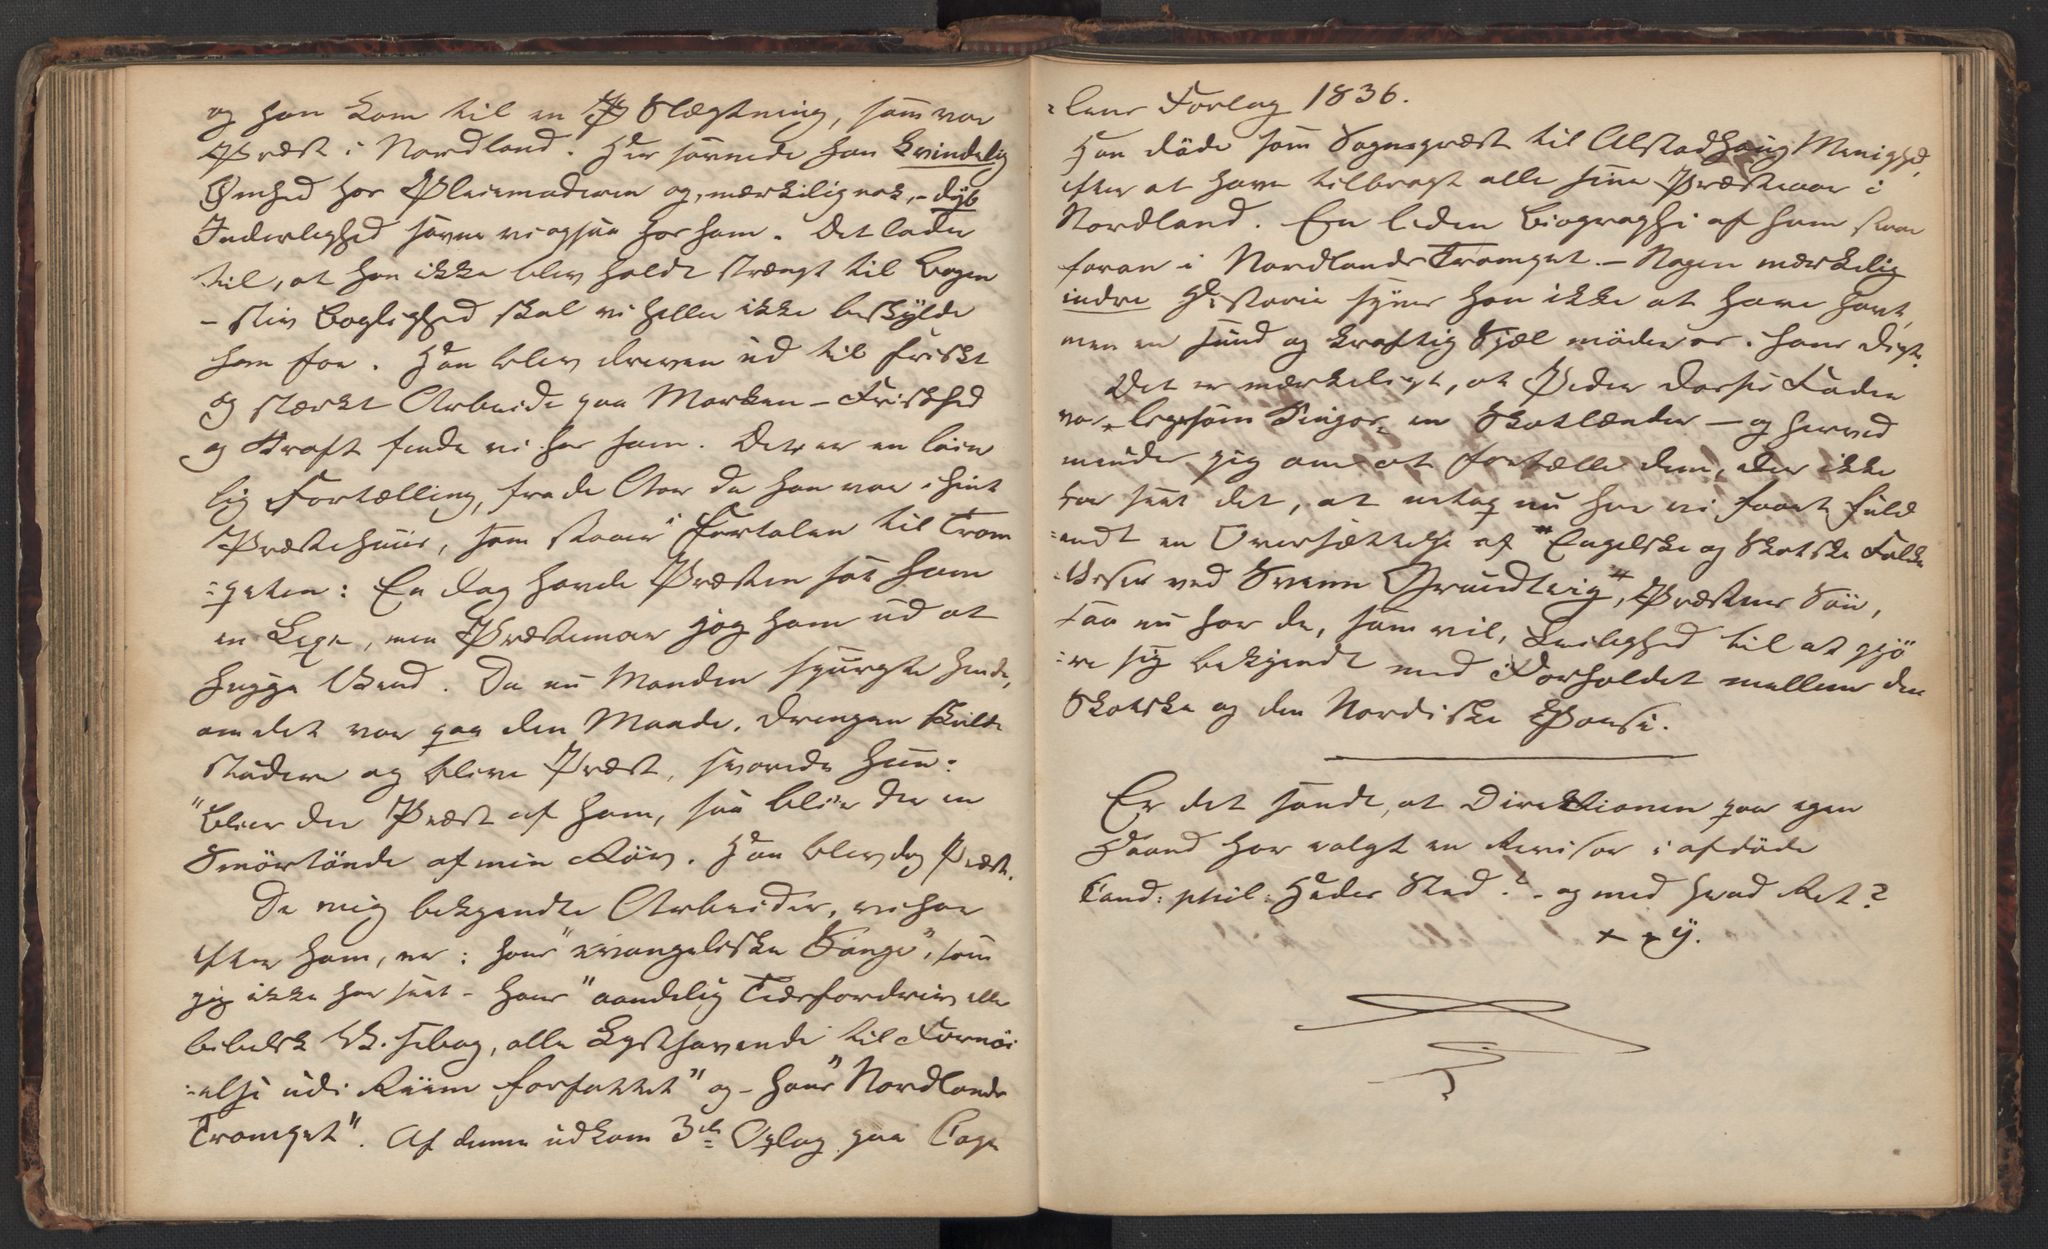 og han kom til en Slægtning, som var
Præst i Nordland. Her savnede han kvindelig
Ømhed hos Pleiemoderen og, mærkelig nok, - dyb
Inderlighed savne vi ogsaa hos ham. Det lader
til, at han ikke blev holdt strængt til Bogen
- stiv Boglighed skal vi heller ikke beskylde
ham for. Han blev dreven ud til friskt
og stærkt Arbeide paa Marken - Friskhed
og Kraft finde vi hos ham. Der er en løier
lig Fortælling, fra de Aar da han var i hint
Præstehuus, som staaer i Fortalen til Trom
=peten: En Dag havde Præsten sat ham
en Lexe, men Præstemoer jog ham ud at
hugge Veed. Da nu Manden spurgte hende,
om det var paa den Maade, Drengen skulde
studere og blive Præst, svarede hun:
"Bliver der Præst af ham, saa bliver der en
Smørtønde af min Røv. Han blev dog Præst.
De mig bekjendte Arbeider, vi har
efter ham, er: hans "evangeliske Sange", som
jeg ikke har seet - hans "aandelig Tidsfordriv eller
bibelsk Visebog, alle Lysthavende til Fornøi
=else udi Riim forfattet" og - hans "Nordlands
Trompet". Af denne udkom 3die Oplag paa Cape
=lens Forlag 1836.
Han døde som Sognepræst til Alstadhoug Menighd,
efter at have tilbragt alle sine Præsteaar i
Nordland. En liden Biographi af ham staar
foran i Nordlands Trompet. - Nogen mærkelig
indre Historie synes han ikke at have havt,
men en sund og kraftig Sjæl møder os i hans Digte.
Det er mærkeligt, at Peder Dass's Fader
var ligesom Kingos en Skotlænder - og herved
minder jeg om at fortælle dem, der ikke
har seet det, at netop nu har vi faaet fuld
=endt en Oversættelse af "Engelske og Skotske Folke
=viser ved Svenn Grundtvig", Præstens Søn,
saa nu har de, som vil, Leilighed til at gjø
=re sig bekjendt med Forholdet mellem den
Skotske og den Nordiske Poesi.
Er det sandt, at Direktionen paa egen
Haand har valgt en Revisor i afdøde
Cand: phil: Heders Sted? - og med hvad Ret?
x + y.